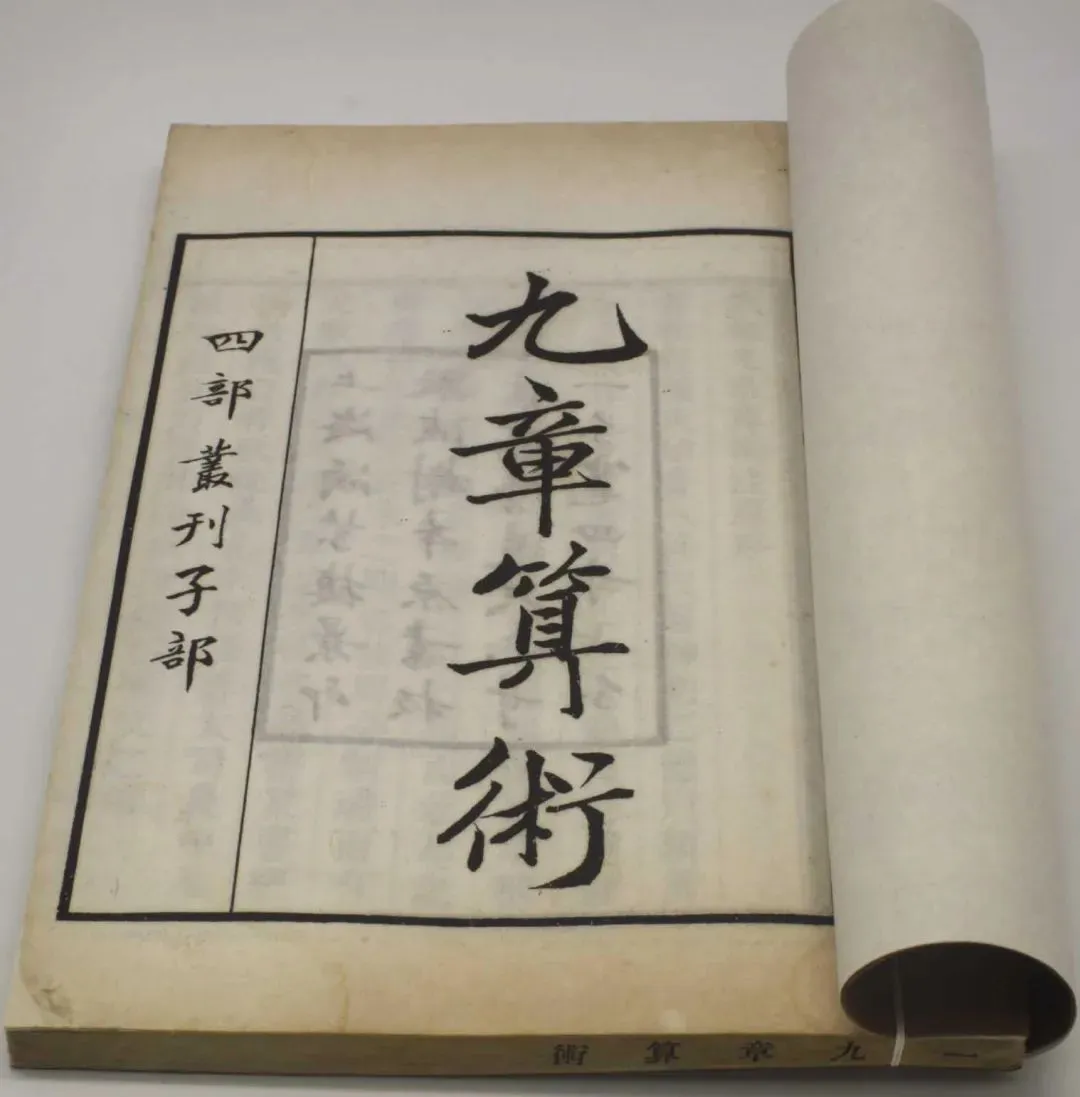 九章算術
四部叢刊子部
一九章算術